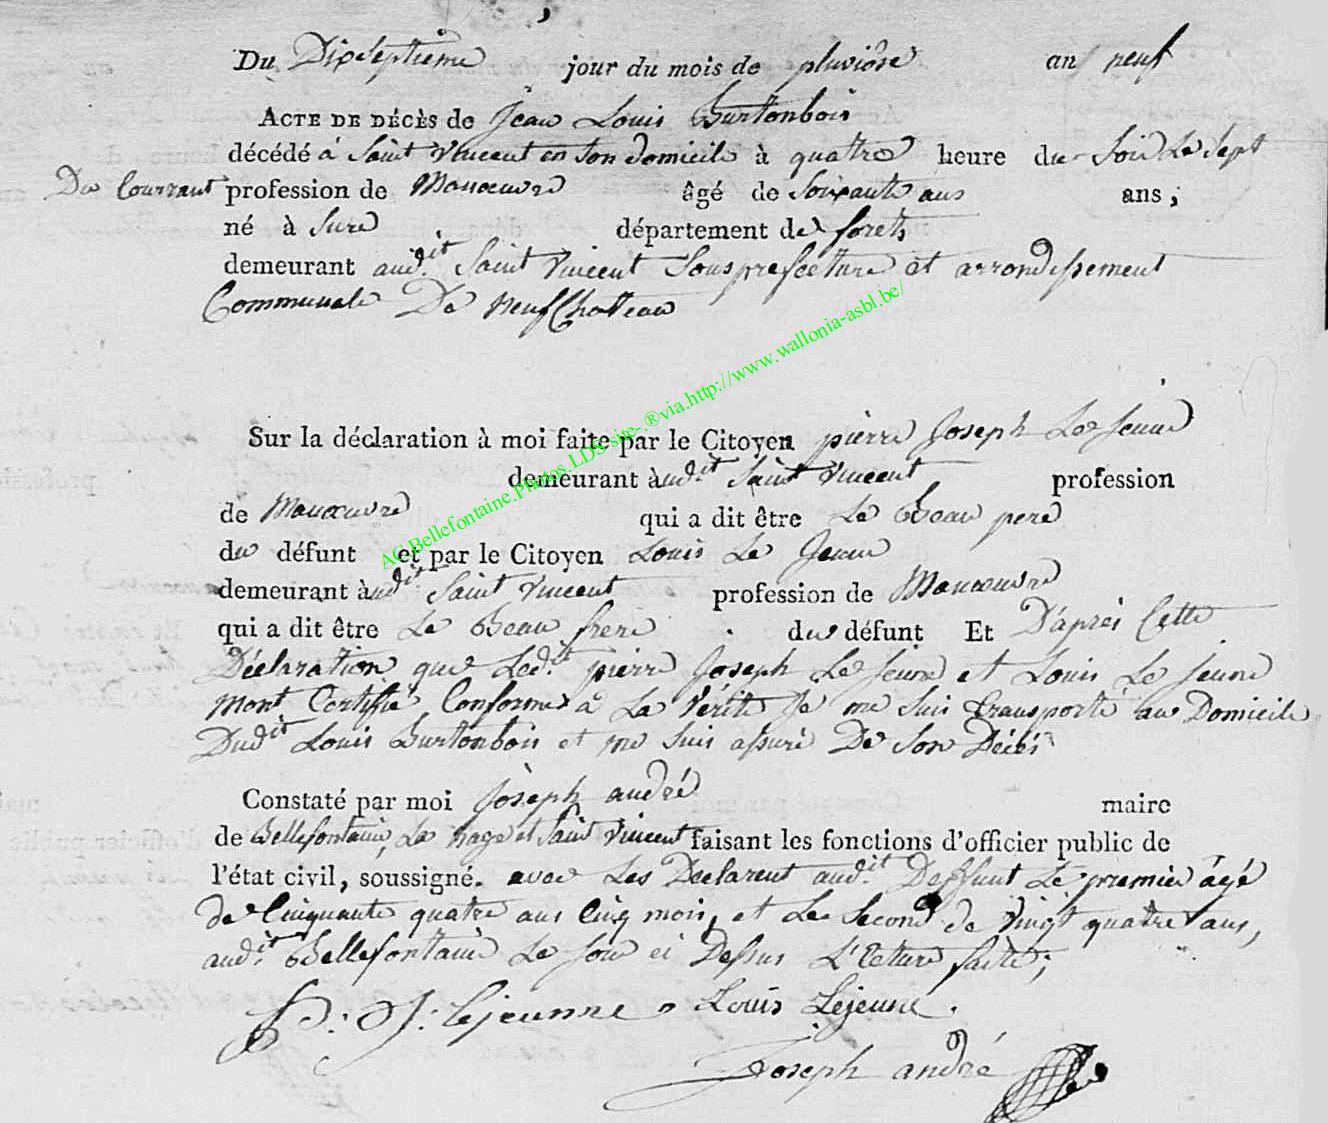 Du Dixseptieme jour du mois de pluviôse an neuf
ACTE DE DÉCÈS de Jean Louis Burtonbois
décédé à Saint Vincent en Son domicile à quatre heure du Soir Le Sept
Du Courrant profession de Manœuvre âgé de Soixante ans ans ;
né à Sure département de forets
demeurant aud.it Saint Vincent Sousprefecture et arrondissement
Communale De Neufchateau
Sur la déclaration à moi faite par le Citoyen pierre Joseph Le Jeune
demeurant àud.it Saint Vincent profession
de Manœuvre qui a dit être Le Beau pere
du défunt et par le Citoyen Louis Le Jeune
demeurant àud.it Saint Vincent profession de Manœuvre
qui a dit être Le Beau frere du défunt Et D'aprés Cette
Déclaration que Led.it pierre Joseph Le Jeune et Louis Le Jeune
Mont Certifié Conforme à La Vérité Je me Suis transporté au Domicile
Dud.it Louis Burtonbois et me Suis assuré De Son Décès
Constaté par moi Joseph andré maire
de Bellefontaine, La hage et Saint Vincent faisant les fonctions d'officier public de
l'état civil, soussigné. avec Les Declarent aud.it Deffunt Le premier ágé
de Cinquante quatre ans Cinq mois, et Le Second de Vingt quatre ans,
aud.it Bellefontaine Le Jour ei Dessus L'Ecture faite ;
P: J: Lejeunne Louis Lejeune.
Joseph andré
AC.Bellefontaine.Photos.LDS-site-.®via.http://www.wallonia-asbl.be/